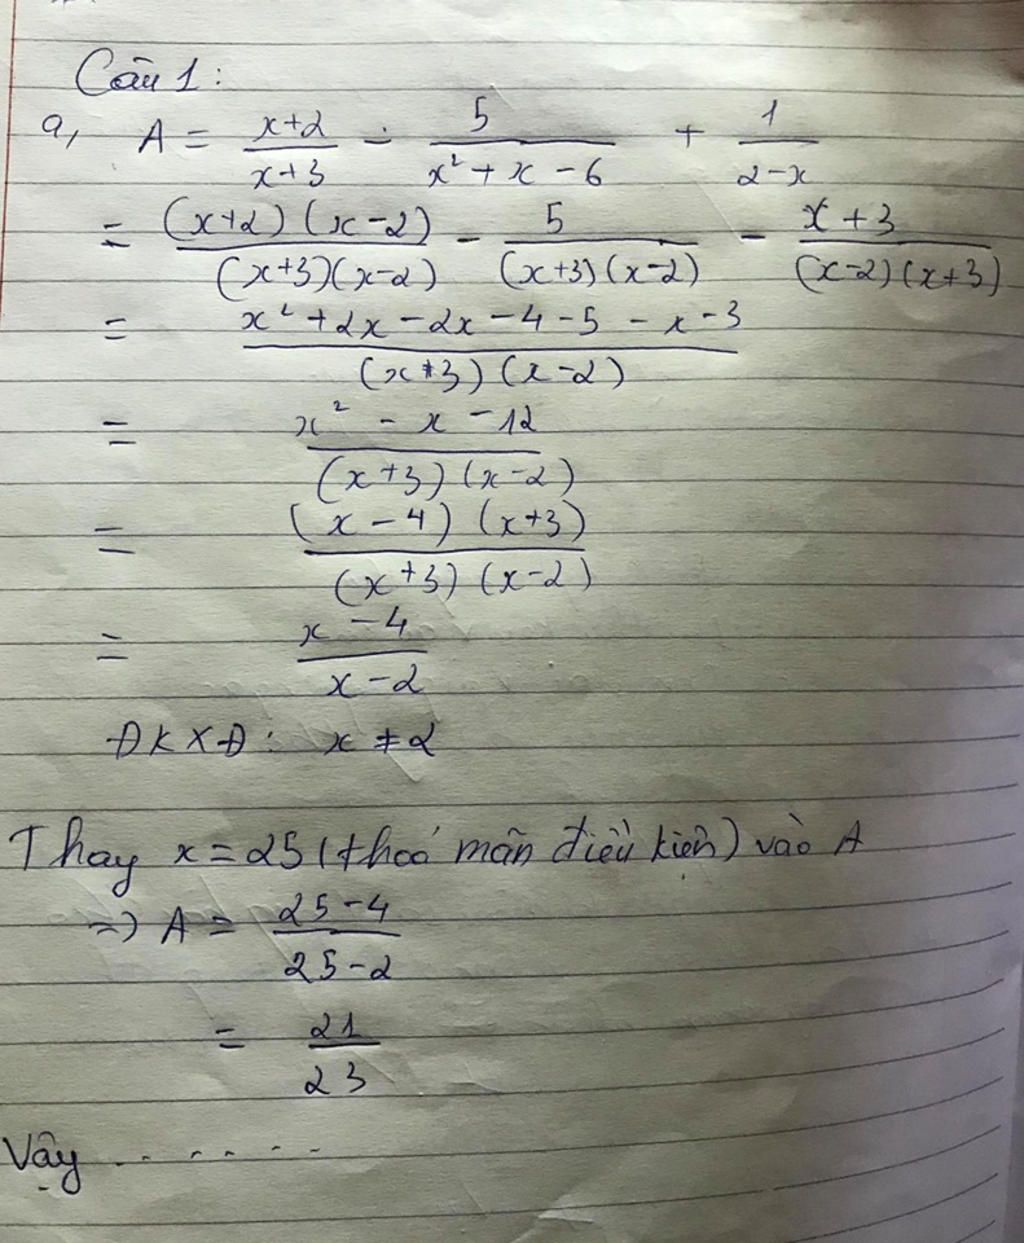 Câu 1:
a, A = \frac{x+2}{x+3} - \frac{5}{x²+x-6} + \frac{1}{2-x}
= \frac{(x+2)(x-2)}{(x+3)(x-2)} - \frac{5}{(x+3)(x-2)} - \frac{x+3}{(x-2)(x+3)}
= \frac{x²+2x-2x-4-5-x-3}{(x+3)(x-2)}
= \frac{x²-x-12}{(x+3)(x-2)}
= \frac{(x-4)(x+3)}{(x+3)(x-2)}
= \frac{x-4}{x-2}
ĐKXĐ: x ≠ 2
Thay x = 25 (thoả mãn điều kiện) vào A
=> A = \frac{25-4}{25-2}
= \frac{21}{23}
Vậy . . . . . . .